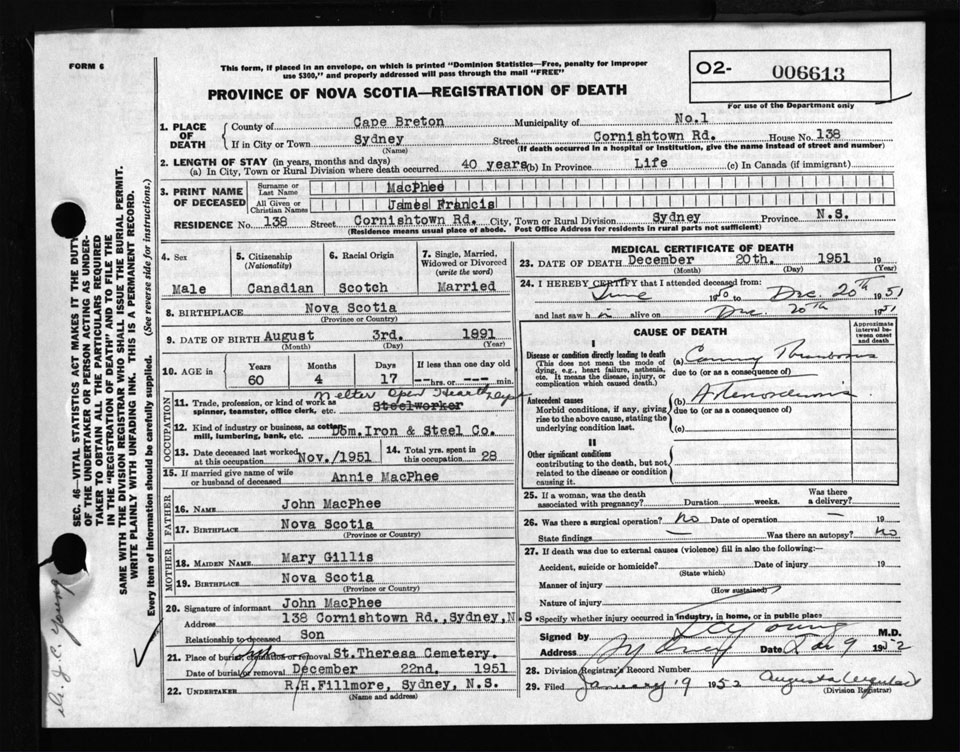 FORM 6
This form, if placed in an envelope, on which is printed "Dominion Statistics—Free, penalty for improper
use $300," and properly addressed will pass through the mail "FREE"
PROVINCE OF NOVA SCOTIA—REGISTRATION OF DEATH
O2- 006613
For use of the Department only
1. PLACE OF DEATH County of Cape Breton Municipality of No.1
If in City or Town Sydney Street Cornishtown Rd. House No. 138
(Name) (If death occurred in a hospital or institution, give the name instead of street and number)
2. LENGTH OF STAY (in years, months and days)
(a) In City, Town or Rural Division where death occurred 40 years (b) In Province Life (c) In Canada (if immigrant)
3. PRINT NAME OF DECEASED Surname or Last Name MacPhee
All Given or Christian Names James Francis
RESIDENCE No. 138 Street Cornishtown Rd. City, Town or Rural Division Sydney Province N.S.
(Residence means usual place of abode. Post Office Address for residents in rural parts not sufficient)
4. Sex Male
5. Citizenship (Nationality) Canadian
6. Racial Origin Scotch
7. Single, Married, Widowed or Divorced (write the word) Married
8. BIRTHPLACE Nova Scotia
(Province or Country)
9. DATE OF BIRTH August 3rd. 1891
(Month) (Day) (Year)
10. AGE in Years 60 Months 4 Days 17 If less than one day old -- hrs. or -- min.
OCCUPATION
11. Trade, profession, or kind of work as spinner, teamster, office clerk, etc. Melter Open Hearth Steelworker
12. Kind of industry or business, as cotton mill, lumbering, bank, etc. Dom. Iron & Steel Co.
13. Date deceased last worked at this occupation Nov./1951
14. Total yrs. spent in this occupation 28
15. If married give name of wife or husband of deceased Annie MacPhee
FATHER
16. Name John MacPhee
17. Birthplace Nova Scotia
(Province or Country)
MOTHER
18. Maiden Name Mary Gillis
19. Birthplace Nova Scotia
(Province or Country)
20. Signature of informant John MacPhee
Address 138 Cornishtown Rd., Sydney, N.S.
Relationship to deceased Son
21. Place of burial, cremation or removal St.Theresa Cemetery.
Date of burial or removal December 22nd, 1951
22. UNDERTAKER R.H.Fillmore, Sydney, N.S.
(Name and address)
MEDICAL CERTIFICATE OF DEATH
23. DATE OF DEATH December 20th. 1951 19
(Month) (Day) (Year)
24. I HEREBY CERTIFY that I attended deceased from:
June 1950 to Dec. 20th 1951
and last saw h im alive on Dec. 20th 1951
CAUSE OF DEATH
Approximate interval between onset and death
I
Disease or condition directly leading to death
(This does not mean the mode of dying, e.g., heart failure, asthenia, etc. It means the disease, injury, or complication which caused death.)
(a) Coronary Thrombosis
due to (or as a consequence of)
Antecedent causes
Morbid conditions, if any, giving rise to the above cause, stating the underlying condition last.
(b) Arteriosclerosis
due to (or as a consequence of)
(c)
II
Other significant conditions
contributing to the death, but not related to the disease or condition causing it.
25. If a woman, was the death associated with pregnancy? Duration weeks. Was there a delivery?
26. Was there a surgical operation? no Date of operation — 19
State findings — Was there an autopsy? no
27. If death was due to external causes (violence) fill in also the following:—
Accident, suicide or homicide? Date of injury 19
(State which)
Manner of injury
(How sustained)
Nature of injury
Specify whether injury occurred in industry, in home, or in public place
Signed by Young M.D.
Address Sydney Date Jan 9 1952
28. Division Registrar's Record Number
29. Filed January 9 1952 Augusta
(Division Registrar)
SEC. 46—VITAL STATISTICS ACT MAKES IT THE DUTY
OF THE UNDERTAKER OR PERSON ACTING AS UNDER-
TAKER TO OBTAIN ALL THE PARTICULARS REQUIRED
IN THE "REGISTRATION OF DEATH" AND TO FILE THE
SAME WITH THE DIVISION REGISTRAR WHO SHALL ISSUE THE BURIAL PERMIT.
WRITE PLAINLY WITH UNFADING INK. THIS IS A PERMANENT RECORD.
Every item of information should be carefully supplied. (See reverse side for instructions.)
Dr. J. C. Young